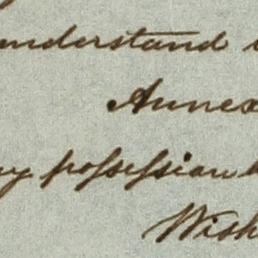 understand
Annex
my poſseſsion
Wish